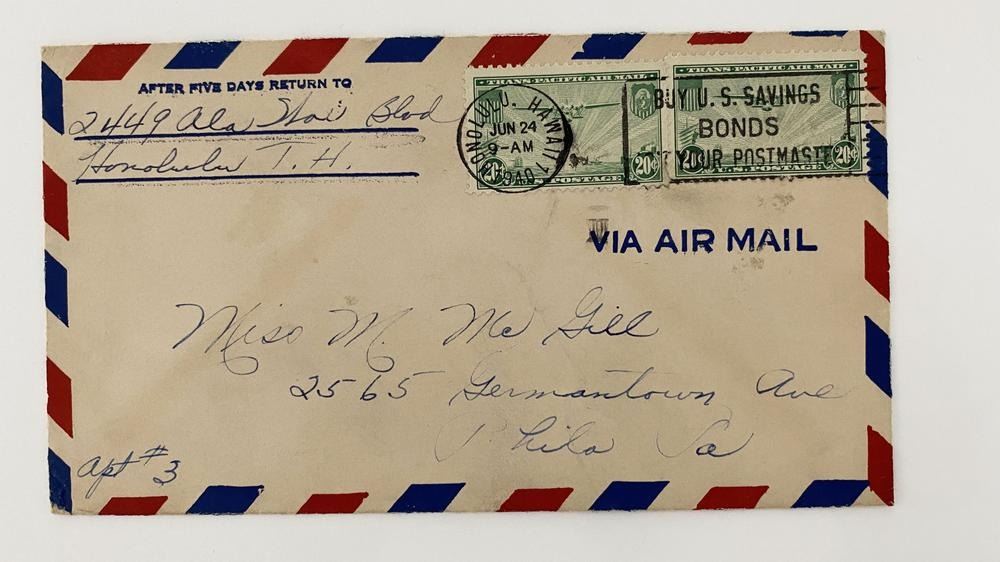 AFTER FIVE DAYS RETURN TO
2449 Ala Wai Blvd
Honolulu T. H.
HONOLULU, HAWAII
JUN 24
9-AM
1940
TRANS-PACIFIC AIR MAIL
20¢ 20¢
POSTAGE
TRANS-PACIFIC AIR MAIL
20¢ 20¢
U.S. POSTAGE
BUY U. S. SAVINGS
BONDS
YOUR POSTMASTE
VIA AIR MAIL
Miss M. Mc Gill
2565 Germantown Ave
Phila Pa
apt #3